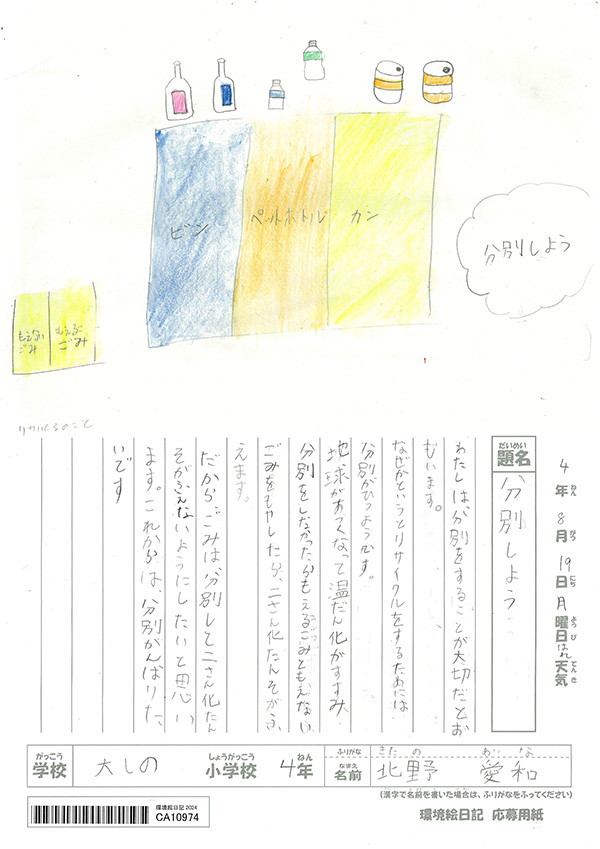 ビン
ペットボトル
カン
分別しよう
もえない
ごみ
もえる
ごみ
リサイくるのこと
4年ねん8月がつ19日にち月曜日ようびはれ天気てんき
題名だいめい
分別しよう
わたしは、分別をすることが大切だとお
もいます。
なぜかというとリサイクルをするためには
分別がひつようです。
地球があつくなって温だん化がすすみ、
分別をしなかったらもえるごみともえない
ごみをもやしたら、二さん化たんそがふ
えます。
だから、ごみは分別して二さん化たん
そがふえないようにしたいと思い
ます。これからは、分別がんばりた
いです
がっこう
学校
大しの
しょうがっこう
小学校
4
ねん
年
ふりがな
きたの
あいな
なまえ
名前
北野 愛和
(漢字で名前を書いた場合は、ふりがなをふってください)
環境絵日記 2024
CA10974
環境絵日記 応募用紙